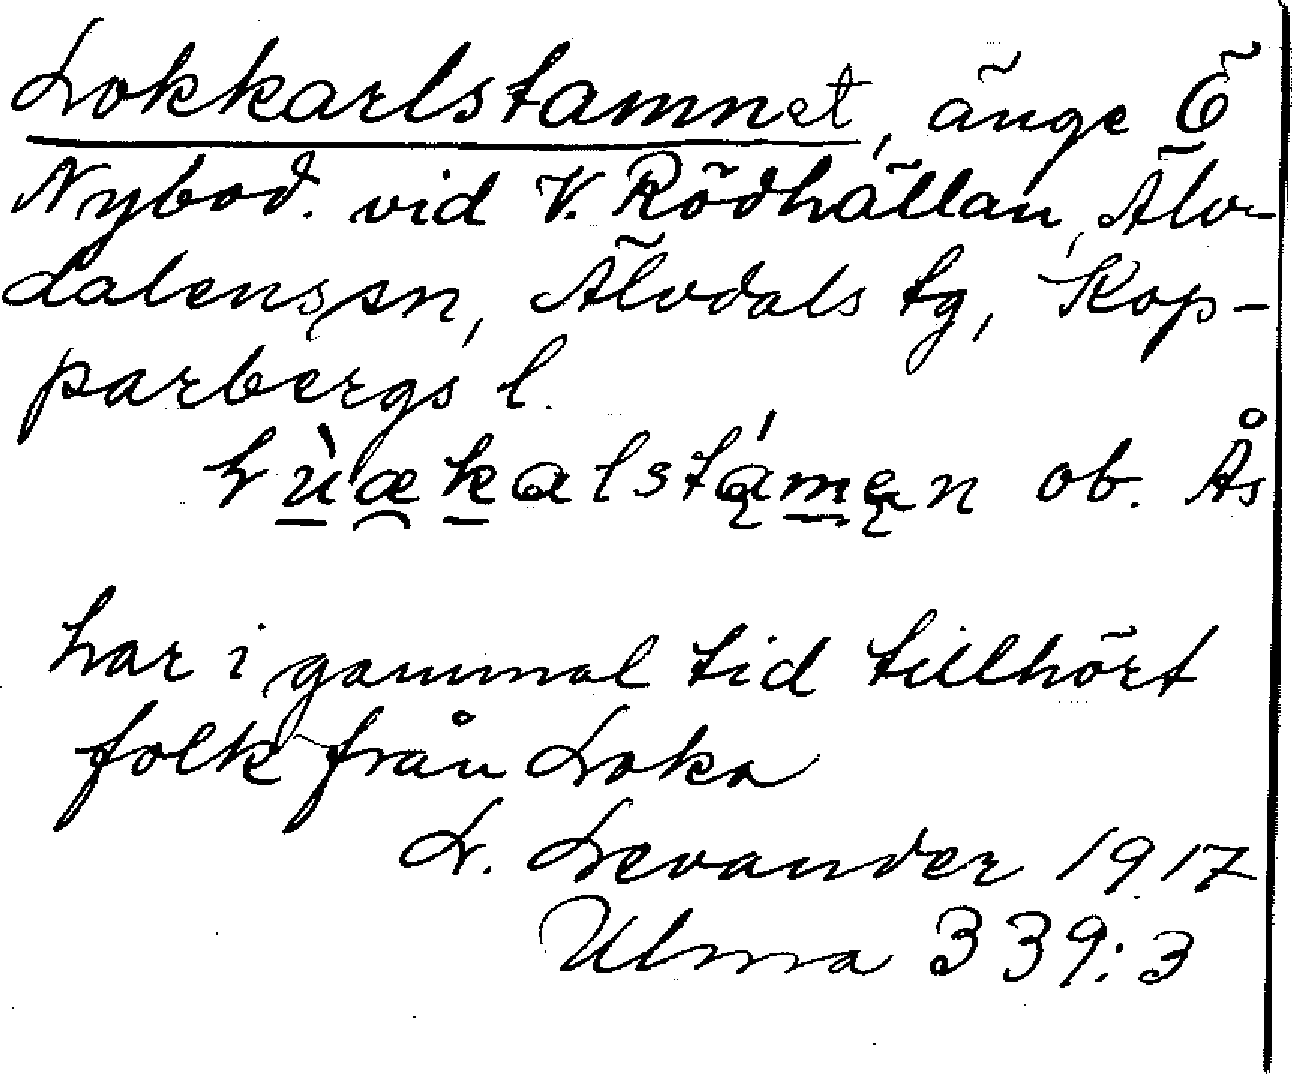 Lokkarlstamnet, änge Ö
Nybod. vid V. Rödhällan, Älv-
dalens sn, Älvdals tg, Kop-
parbergs l.
lùækalstámęn ob. Ås
har i gammal tid tillhört
folk från Loka
L. Levander 1917
Ulma 339:3